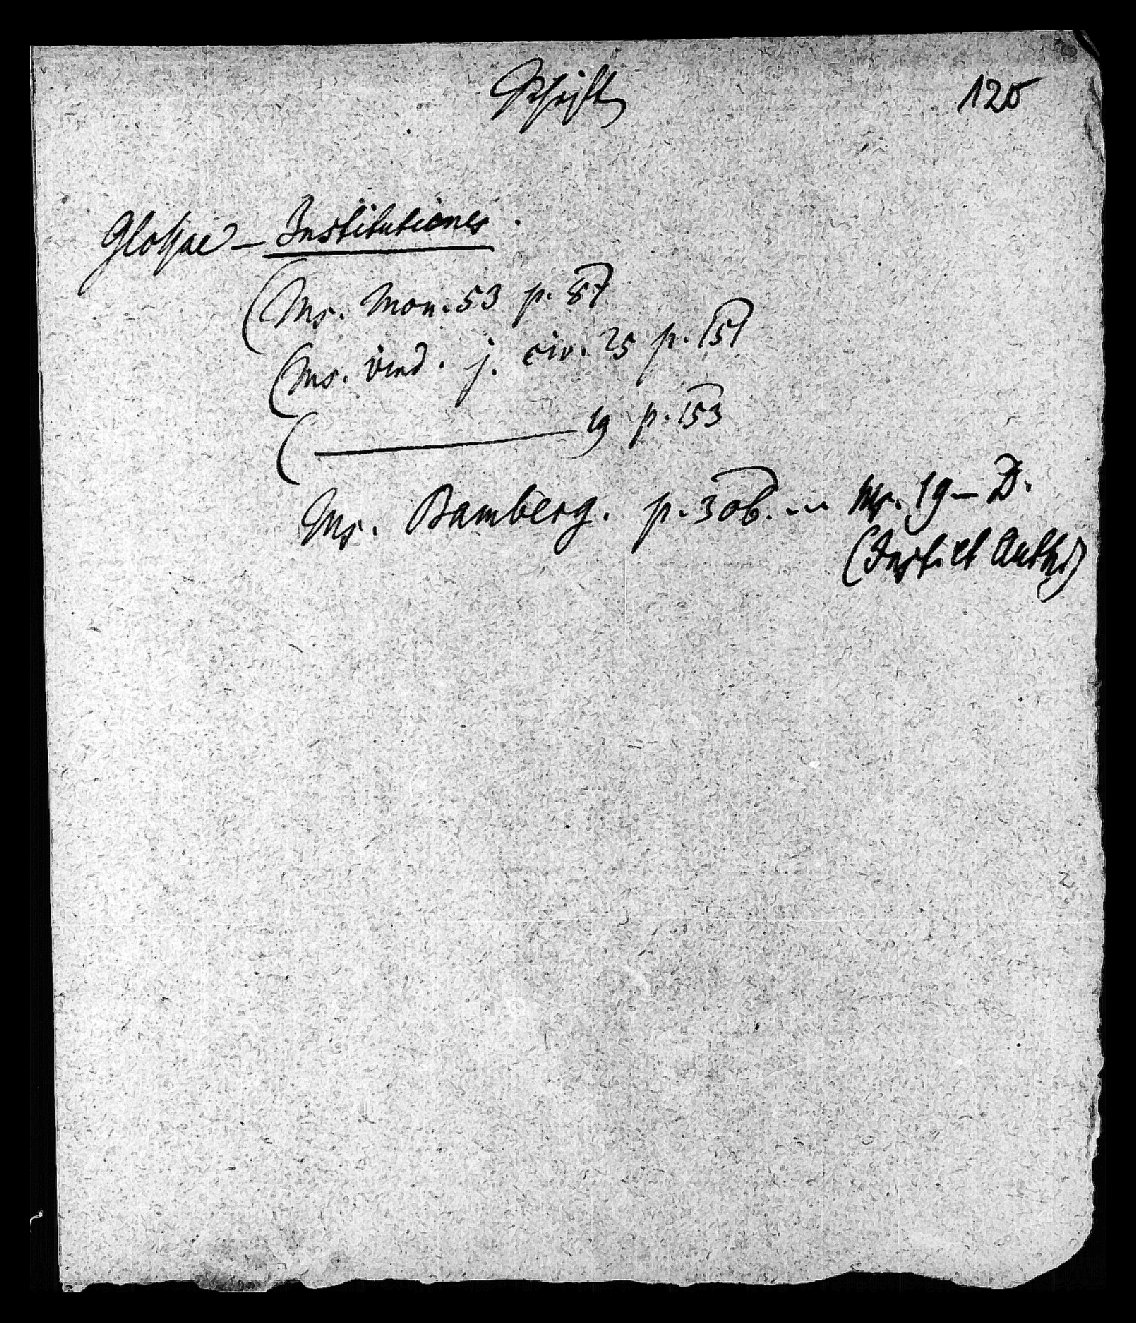 Schrift
125
Glossae – Institutiones.
(Ms. Mon. 53 p. 87
(Ms. vind. j. civ. 25 p. 151
( ——— 19 p. 153
Ms. Bamberg. p. 306. Ms. 19 – D.
(Instit Auth.)